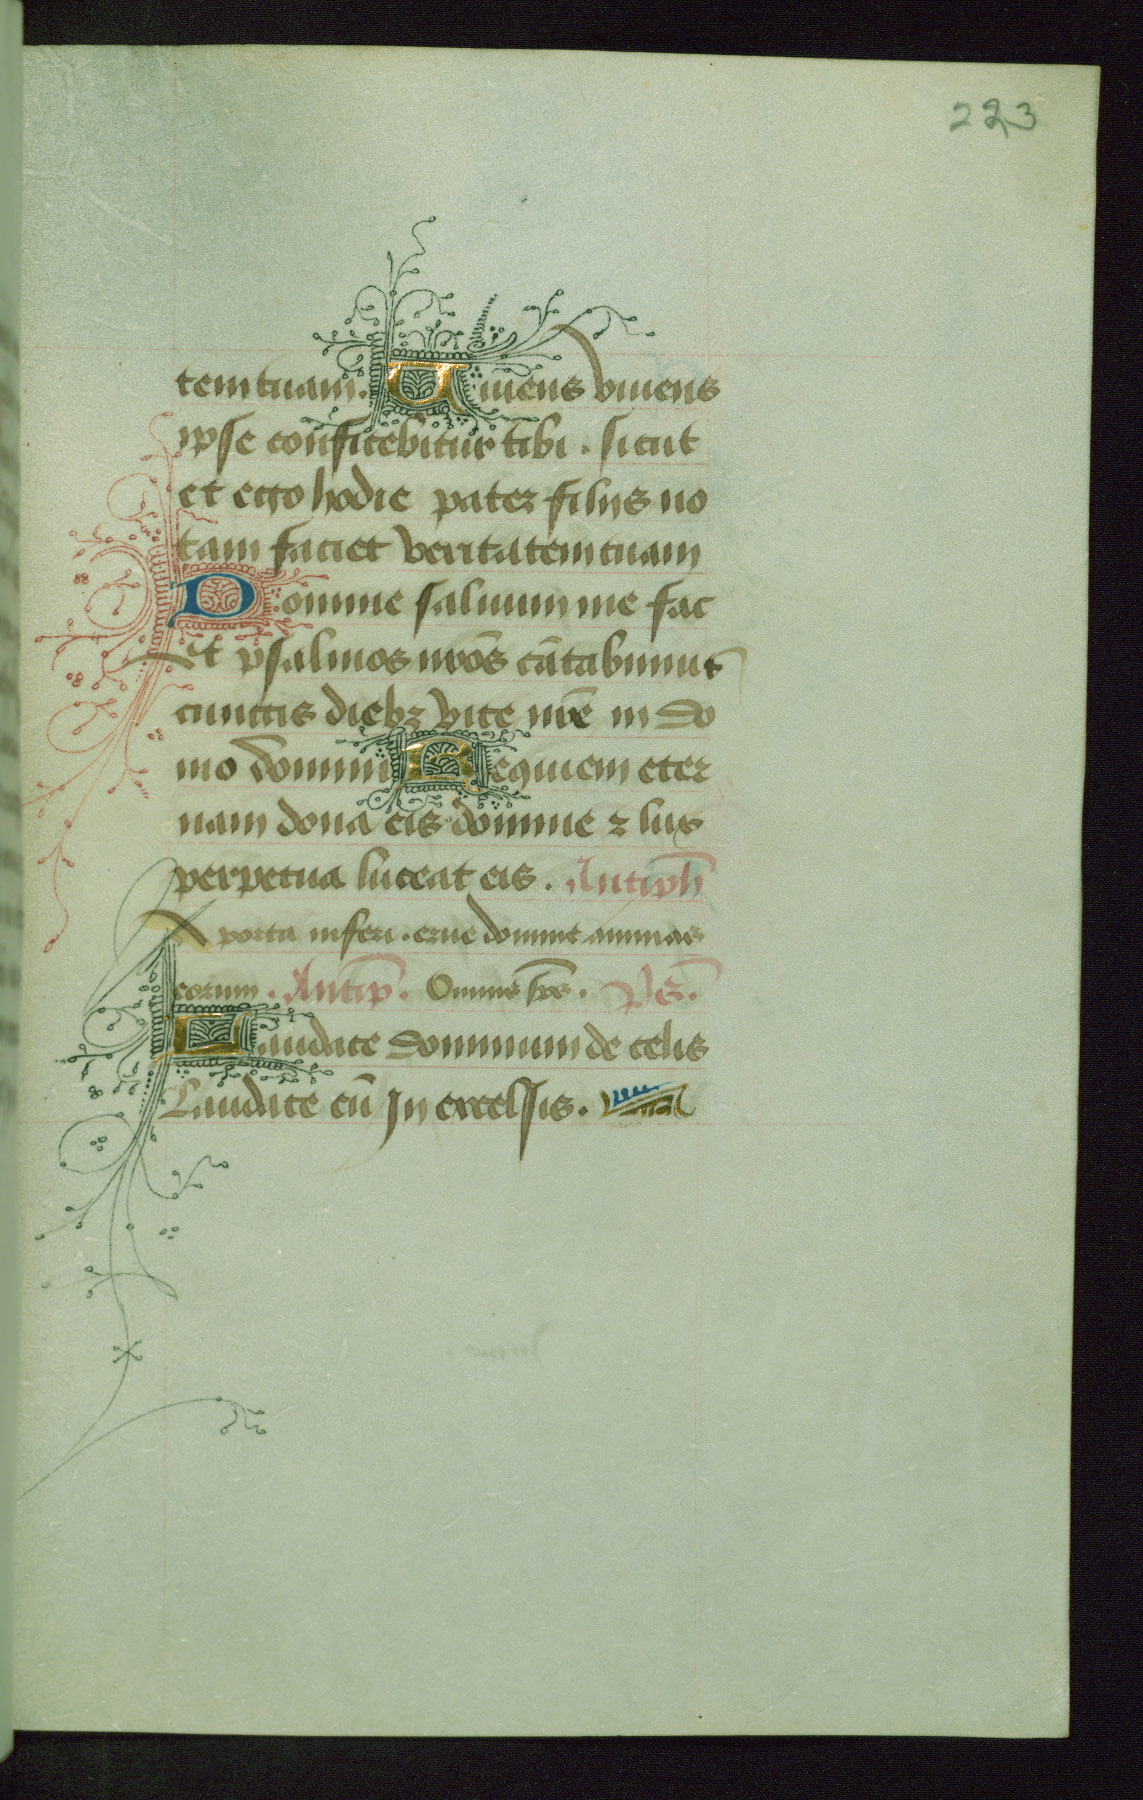 223
tem tuam. Viuens viuens
ipse confitebitur tibi. sicut
et ego hodie pater filijs no
tam faciet veritatem tuam
Domine saluum me fac
Et psalmos nr̄os cātabimus
cunctis diebꝫ vite nr̄e in do
mo domini Requiem eter
nam dona eis domine ⁊ lux
perpetua luceat eis. Antiph̄
A porta inferi. erue domine animas
eorum. Antip̄. Omnis sp̄s. Ps̄.
Laudate dominum de celis
Laudate eū in excelsis.